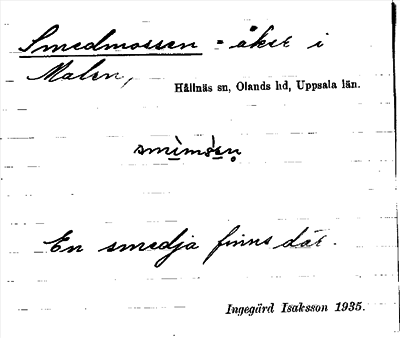 Smedmossen - åker i
Malen,
Hållnäs sn, Olands hd, Uppsala län.
En smedja finns där.
Ingegärd Isaksson 1935.